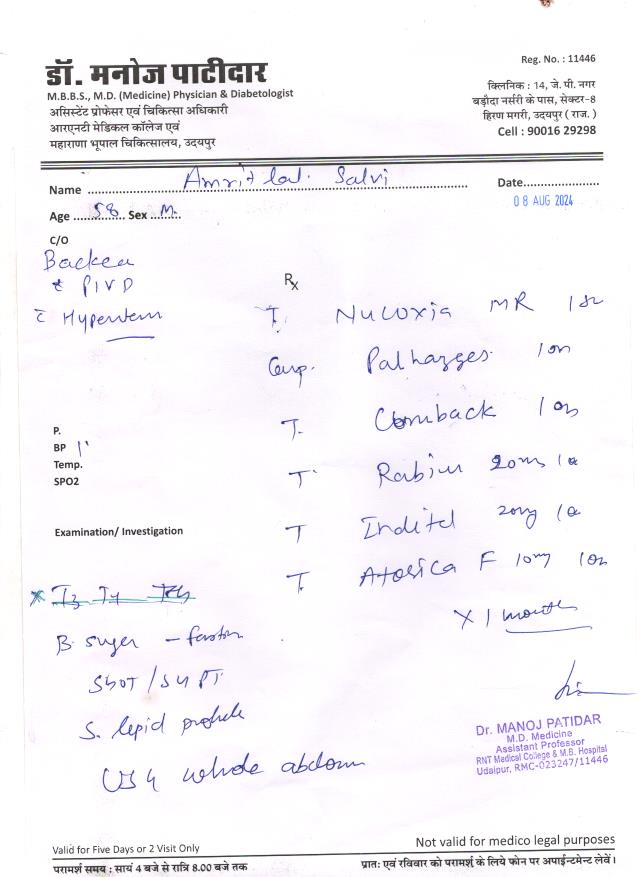 डॉ. मनोज पाटीदार
M.B.B.S., M.D. (Medicine) Physician & Diabetologist
असिस्टेंट प्रोफेसर एवं चिकित्सा अधिकारी
आरएनटी मेडिकल कॉलेज एवं
महाराणा भूपाल चिकित्सालय, उदयपुर
Reg. No. : 11446
क्लिनिक : 14, जे. पी. नगर
बड़ौदा नर्सरी के पास, सेक्टर-8
हिरण मगरी, उदयपुर ( राज. )
Cell : 90016 29298
Name Amrit lal. Salvi Date
08 AUG 2024
Age 58 Sex M.
C/O
PIVD
Rx
T. Nucoxia MR
Cap.
T. Comback
P.
BP
Temp.
SPO2
T. 20mg
Examination/ Investigation
T 20mg
T. F 10mg
T3 T4 TSH
X 1 month
B. suger
SGOT/SGPT
S. lepid profile
USG whole abdomen
Dr. MANOJ PATIDAR
M.D. Medicine
Assistant Professor
RNT Medical College & M.B. Hospital
Udaipur, RMC-023247/11446
Valid for Five Days or 2 Visit Only
Not valid for medico legal purposes
परामर्श समय : सायं 4 बजे से रात्रि 8.00 बजे तक
प्रातः एवं रविवार को परामर्श के लिये फोन पर अपाईन्टमेन्ट लेवें।